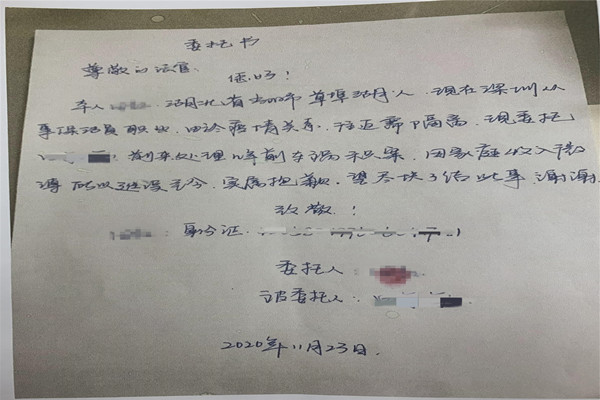 委托书
尊敬的法官
您好!
本人 湖北省当阳市草埠湖人.现在深圳从
事保洁员职业,由于疫情关系,往返需隔离,现委托
前来处理 年前车祸积案,因家庭收入微
薄所以 至今,实属抱歉,望尽快了结此事,谢谢
致敬!
身份证
委托人
被委托人
2020年11月23日.